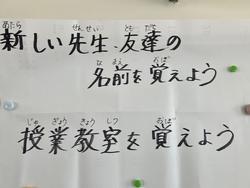 あたら せんせい ともだち
新しい先生、友達の
なまえ おぼ
名前を覚えよう
じゅぎょうきょうしつ おぼ
授業教室を覚えよう